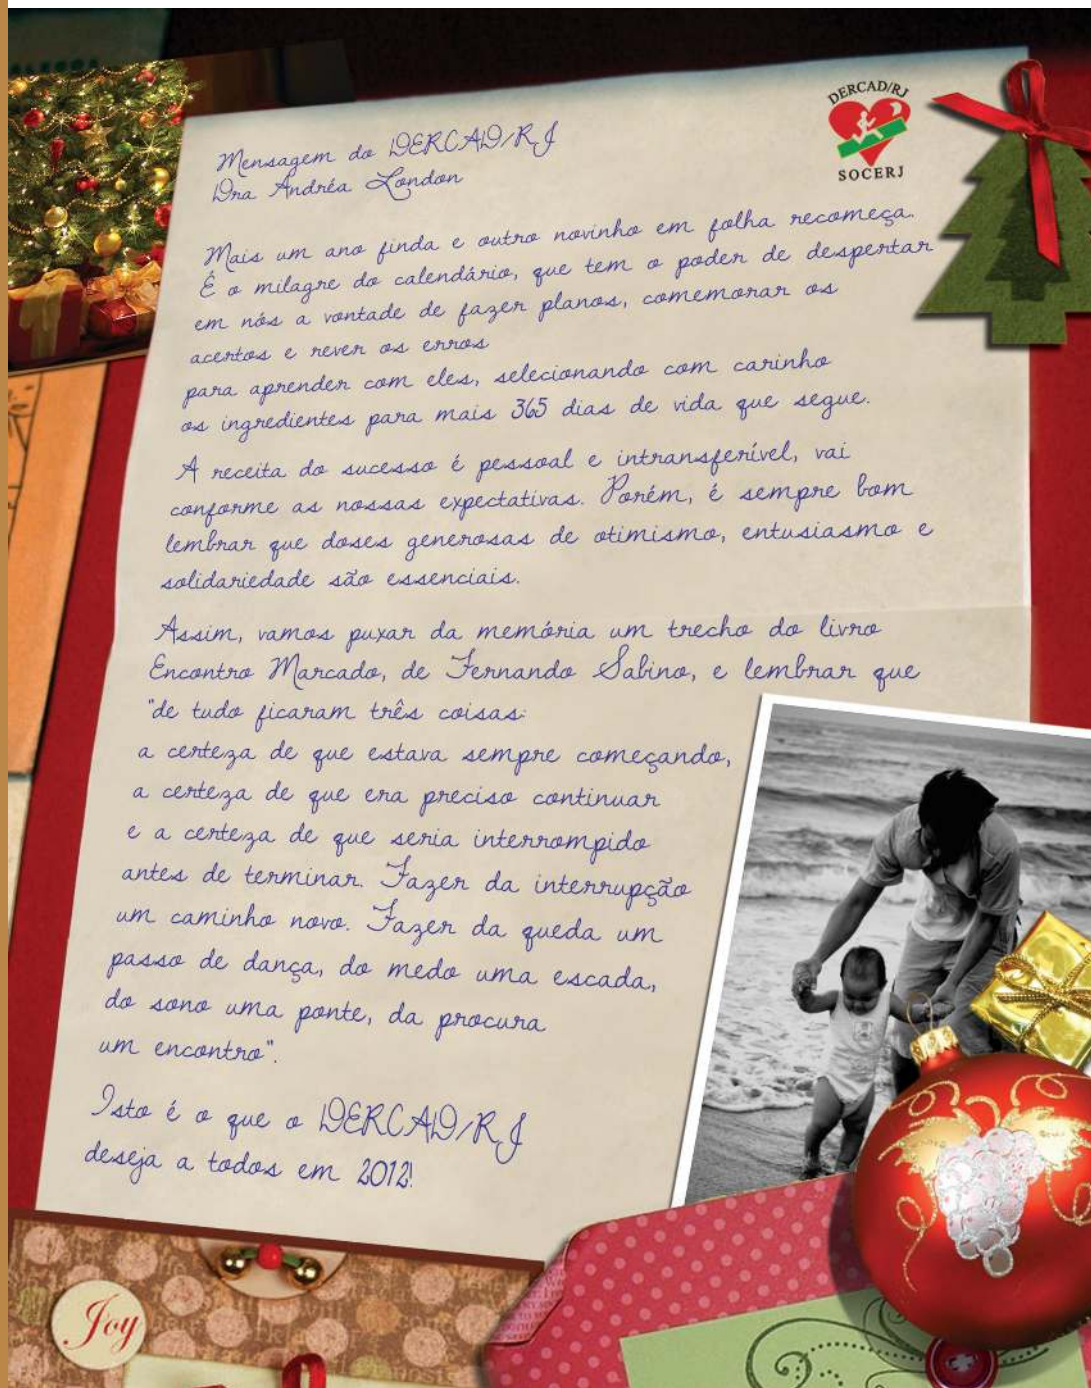 DERCAD/RJ
SOCERJ
Mensagem do DERCAD/RJ
Dra Andréa London
Mais um ano finda e outro novinho em folha recomeça.
É o milagre do calendário, que tem o poder de despertar
em nós a vontade de fazer planos, comemorar os
acertos e rever os erros
para aprender com eles, selecionando com carinho
os ingredientes para mais 365 dias de vida que segue.
A receita do sucesso é pessoal e intransferível, vai
conforme as nossas expectativas. Porém, é sempre bom
lembrar que doses generosas de otimismo, entusiasmo e
solidariedade são essenciais.
Assim, vamos puxar da memória um trecho do livro
Encontro Marcado, de Fernando Sabino, e lembrar que
"de tudo ficaram três coisas:
a certeza de que estava sempre começando,
a certeza de que era preciso continuar
e a certeza de que seria interrompido
antes de terminar. Fazer da interrupção
um caminho novo. Fazer da queda um
passo de dança, do medo uma escada,
do sono uma ponte, da procura
um encontro".
Isto é o que o DERCAD/RJ
deseja a todos em 2012!
Joy